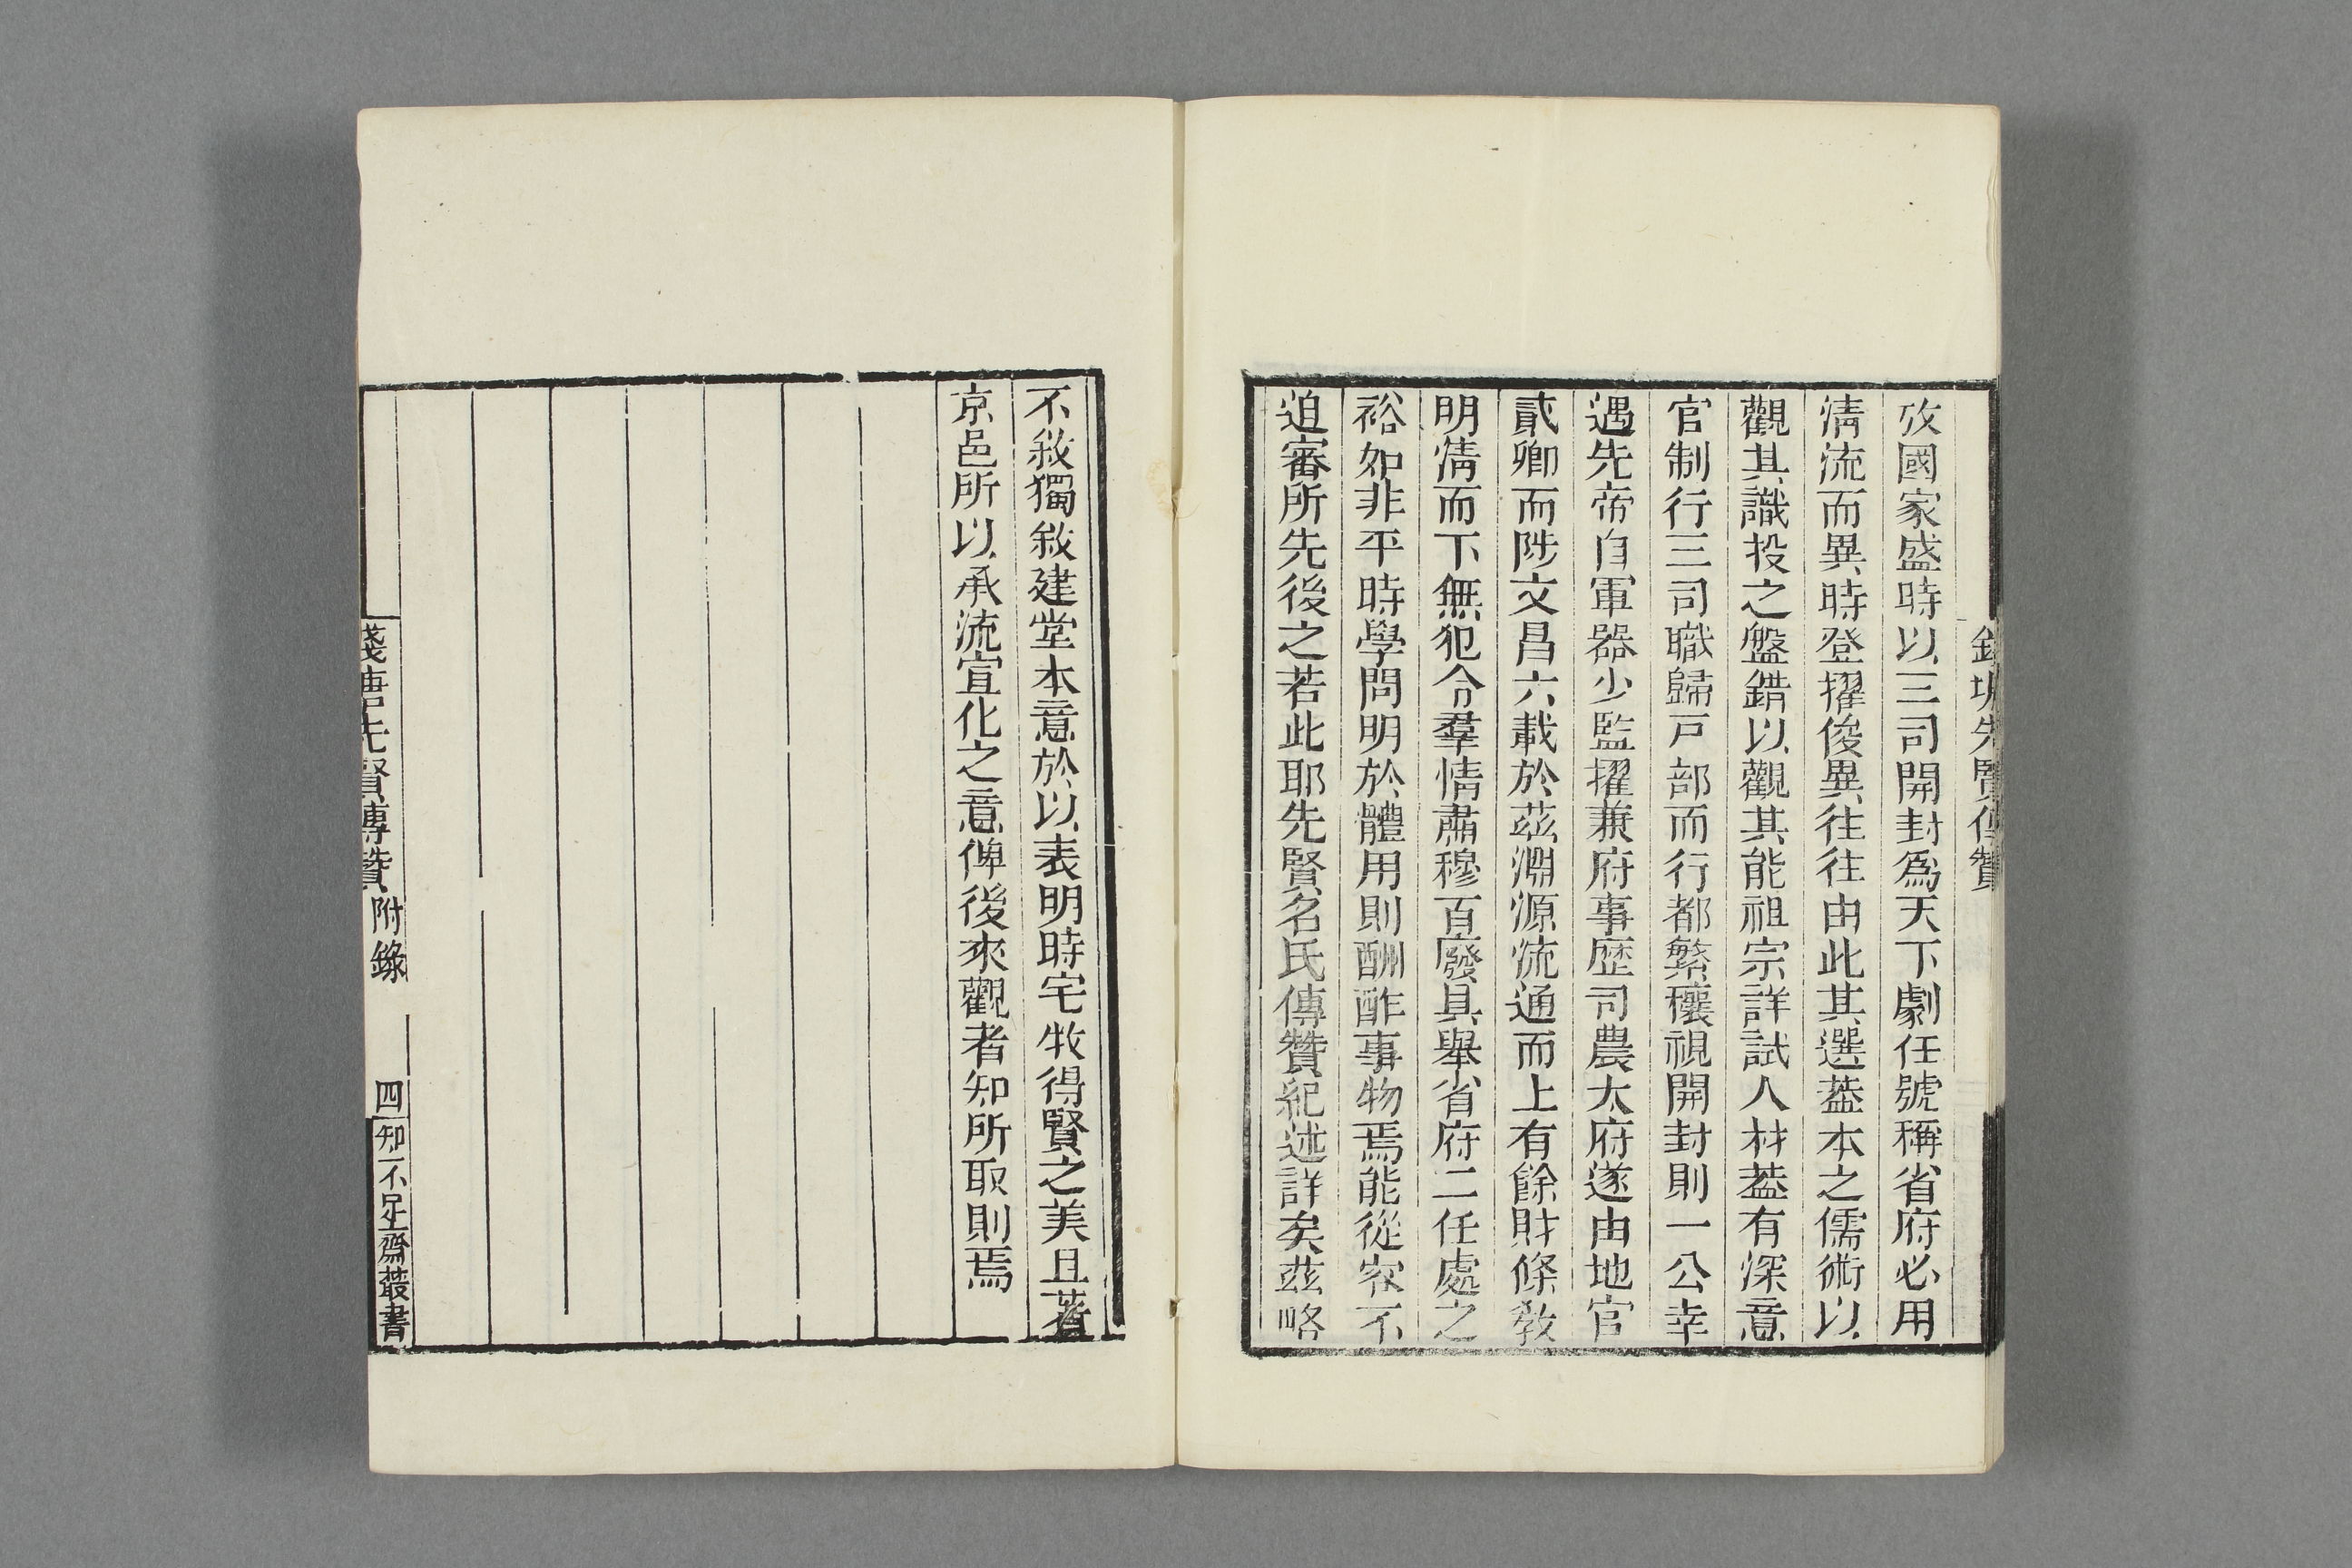 攷國家盛時以三司開封爲天下劇任號稱省府必用
淸流而異時登擢俊異往往由此其選葢本之儒術以
觀其識投之盤錯以觀其能祖宗詳試人材葢有深意
官制行三司職歸戸部而行都繁穰視開封則一公幸
遇先帝自軍器少監擢兼府事歷司農太府遂由地官
貳卿而陟文昌六載於茲淵源流通而上有餘財條敎
明淸而下無犯令羣情肅穆百廢具舉省府二任處之
裕如非平時學問明於體用則酬酢事物焉能從容不
迫審所先後之若此耶先賢名氏傳贊紀述詳矣茲略
不敘獨敘建堂本意於以表明時宅牧得賢之美且著
京邑所以承流宣化之意俾後來觀者知所取則焉
錢塘先賢傳贊
錢唐先賢傳贊 附錄 四 知不足齋叢書